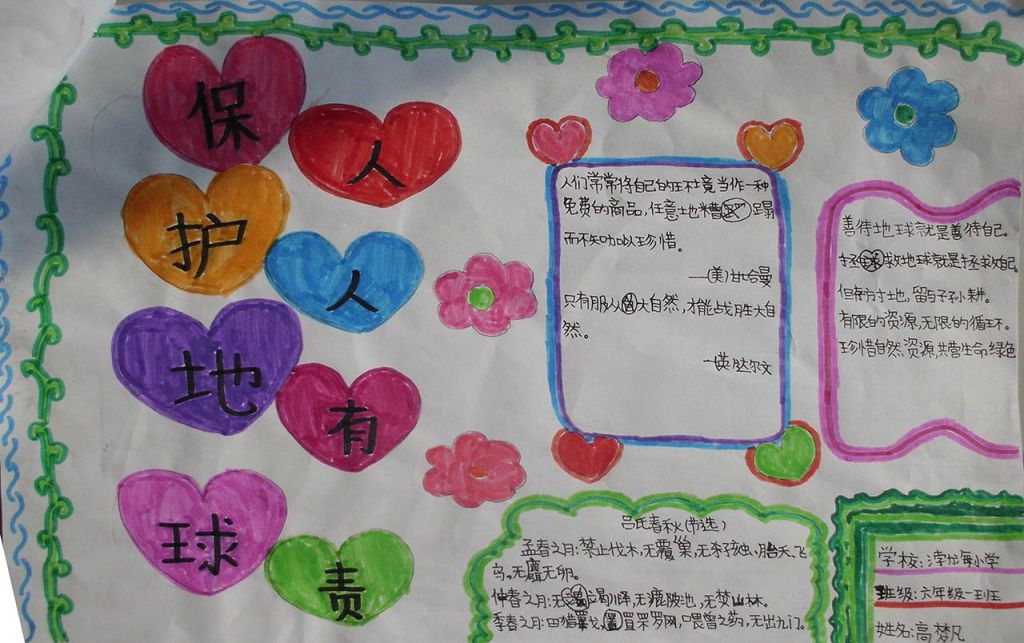 保护地球
人人有责
人们常常将自己的环境当作一种
免费的商品，任意地糟蹋
而不知加以珍惜。
—(美)甘哈曼
只有服从大自然，才能战胜大自
然。
—(英)达尔文
善待地球就是善待自己。
拯救地球就是拯救自己。
但存方寸地，留与子孙耕。
有限的资源，无限的循环。
珍惜自然资源，共营生命绿色
吕氏春秋(节选)
孟春之月:禁止伐木，无覆巢，无杀孩虫、胎夭、飞
鸟，无麛无卵。
仲春之月:无竭川泽，无漉陂池，无焚山林。
季春之月:田猎罼弋，罝罘罗网，喂兽之药，无出九门。
学校:海小学
班级:六年级一班
姓名:高梦凡